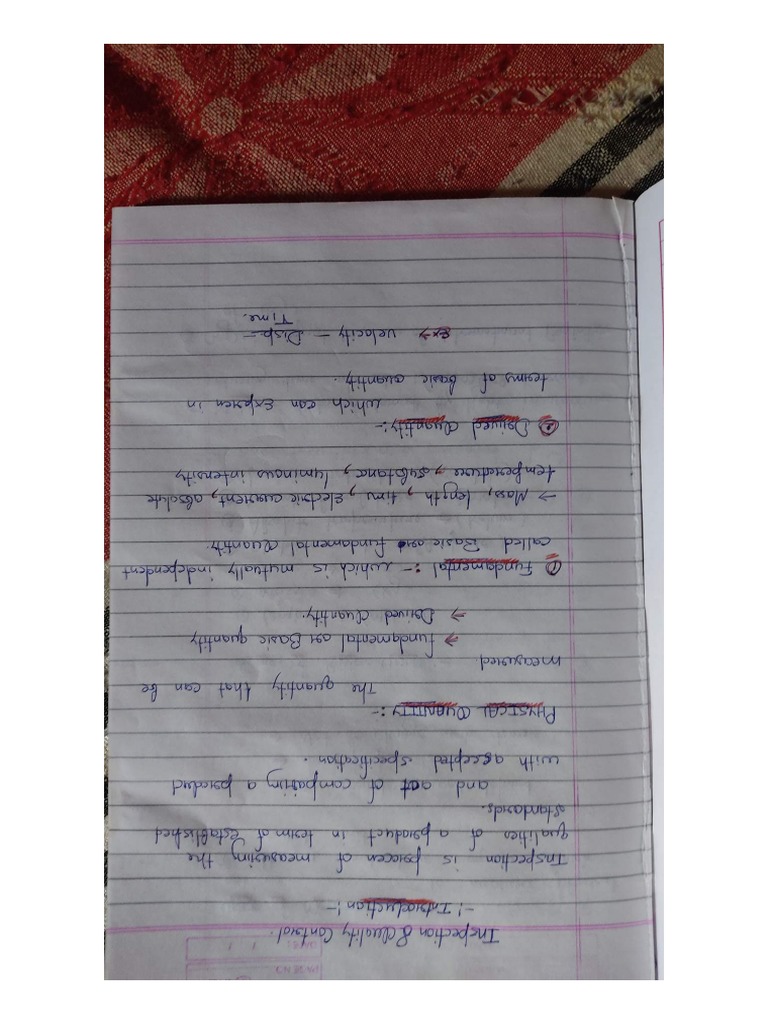 PAGE NO.
DATE: / /
Inspection & Quality Control.
-: Introduction :-
Inspection is process of measuring the
qualities of a product in term of established
standards.
and act of comparing a product
with accepted specification.
PHYSICAL QUANTITY :-
The quantity that can be
measured.
→ fundamental or Basic quantity
→ Derived Quantity.
① Fundamental :- which is mutually independent
called Basic or fundamental Quantity.
→ Mass, length, time, Electric current, absolute
temperature, substance, luminous intensity
② Derived Quantity :-
which can express in
terms of basic quantity.
Ex → velocity - Disp =
Time.